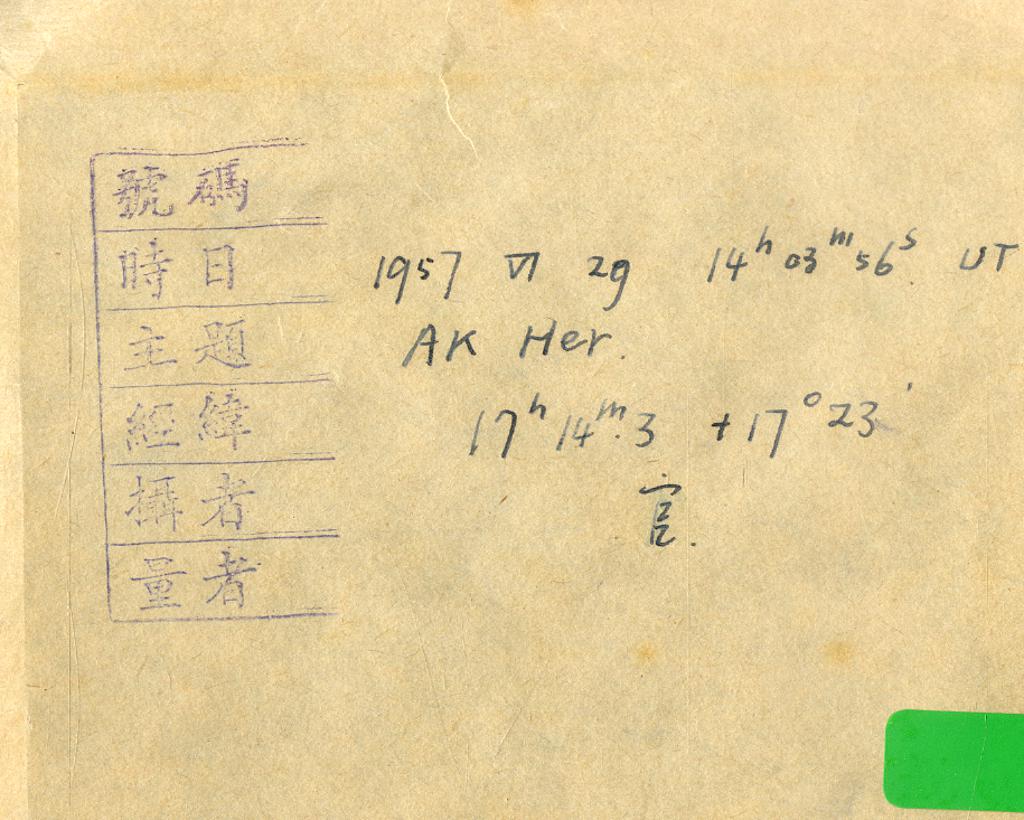 號碼
時日 1957 VI 29 14ʰ 03ᵐ 56ˢ UT
主題 AK Her.
經緯 17ʰ 14ᵐ.3 +17° 23'
攝者 官.
量者